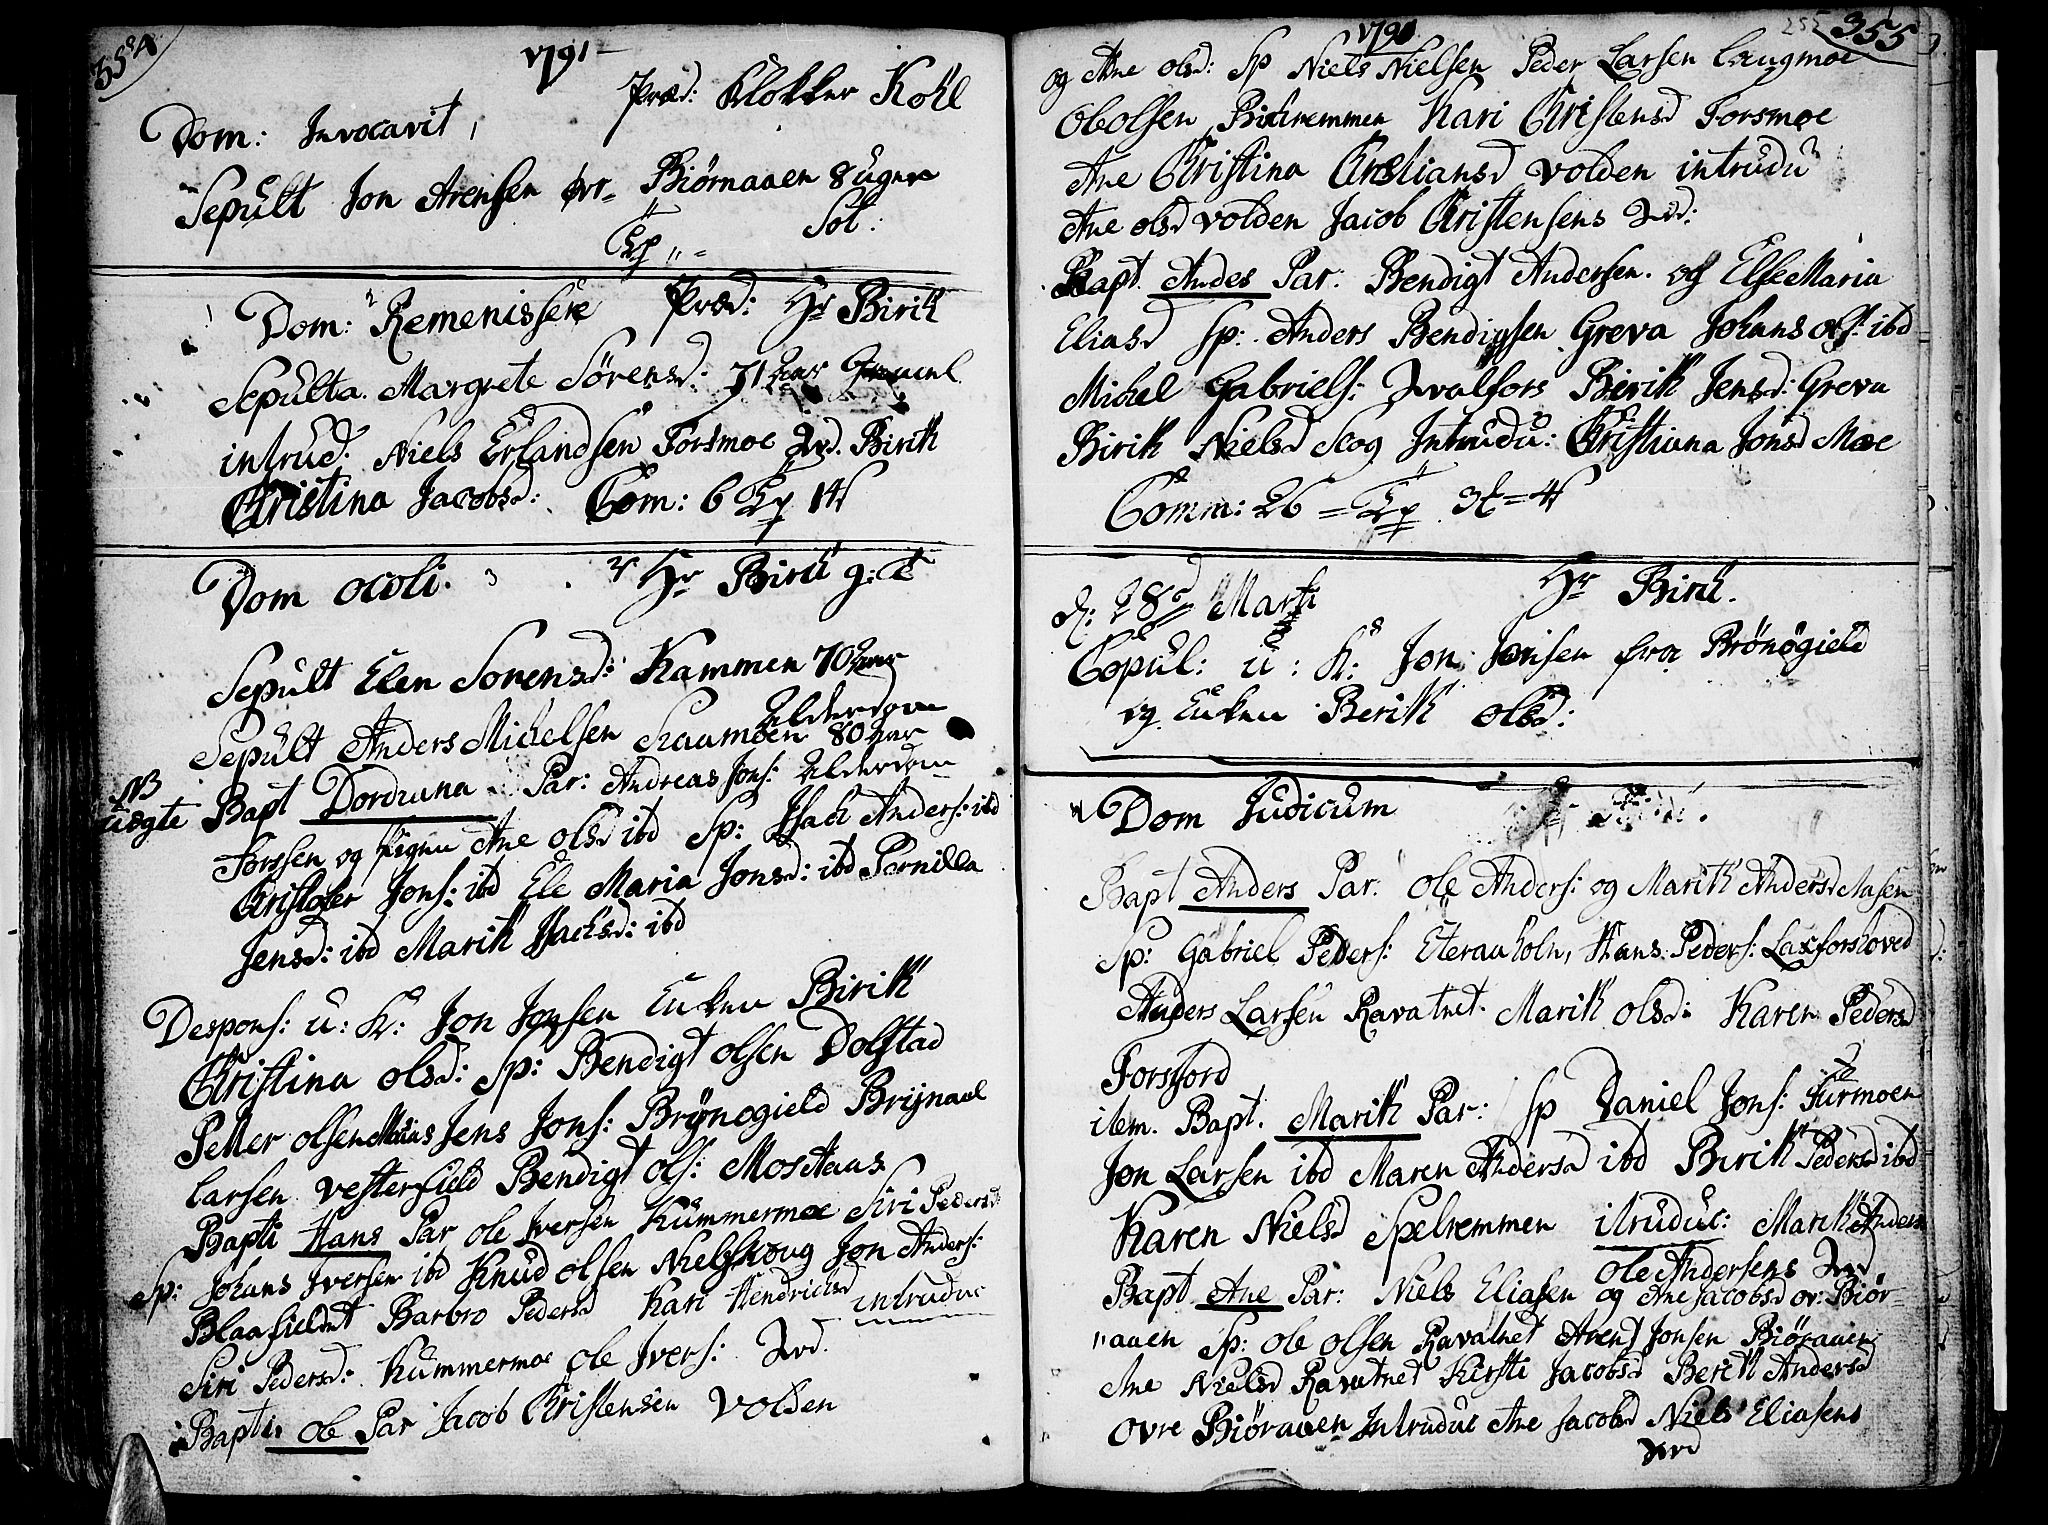 354
1791
Dom: Invocavit 1 Præd: Klokker Kohl
Sepult Jon Arensen øvr- Biørnaaen 8 ugur
Sot:
Dom: 2 Remenissere Præd: Hr Birik
Sepulta. Margrete Sørensd: 71 aar
intrud. Niels Erlandsen Forsmoe Qvd. Birik
Christina Jacobsd: Com: 6
Dom ocoli. 3 Hr Birik
Sepult Elen Sorensd: Kammen 70 aar
Alderdom
Sepult Anders Michelsen Kaamoen 80 aar
Alderdom
NB
uægte Bapt Dorduna Par: Andreas Jons:
Forssen og Ane olsd ibd Sp: Isach Anders: ibd
Christofer Jons: ibd Ele Maria Jonsd: ibd Pernilla
Jensd: ibd Marit Isachsd: ibd
Despons: u: K: Jon Jonsen Enken Birik
Christina olsd: Sp: Bendigt olsen Dolstad
Petter olsen Jens Jons: Brønogield Brijnael
larsen vesterfield Bendigt ols: Mosaas
Bapti Hans Par ole Iversen Kummermoe Siri Pedersd
Sp: Johans Iversen ibd Knud olsen Nielsskoug Jon Anders:
Blaafieldet Barbro Pedersd Kari Hendrichsd intruduc
Siri Pedersd: Kummermoe ole Ivers: Qvd.
Bapti. ole Par Jacob Christensen volden
1791
355
og Ane olsd: Sp Niels Nielsen Peder Larsen Laugmoe
Ole olsen Kari Christensd Forsmoe
Ane Christina Christiansd volden intrudu
Ane olsd volden Jacob Christensens Qvd:
Bapt. Andes Par: Bendigt Andersen. og Else Maria
Eliasd Sp: Anders Bendigsen Greva Johans ols: ibd
Michel Gabriels: Qvalfors Birik Jensd: Greva
Birik Nielsd Scog Intrudu: Christiana Jonsd Moe
Comm: 26
d: 28d Marti Hr Birik.
Copul: u: K: Jon Jonsen fra Brønøgield
og Enken Berik olsd:
Dom Judicum
Bapt Anders Par: ole Anders: og Marith Andersd
Sp: Gabriel Peders: Hans Peders: Laxforshoved
Anders Larsen Ravatnet. Marik olsd: Karen Pedersd
Forsfjord
item. Bapt. Marik Par: Sp Daniel Jons: Furmoen
Jon Larsen ibd Maren Andersd ibd Birik Pedersd ibd
Karen Nielsd Spelremmen itruduc: Marik Anders
ole Andersens Qvd
Bapt Ane Par: Niels Eliasen og Ane Jacobsd ov: Biør-
aaen Sp: ole olsen Ravatnet Arent Jonsen Biøraaen
Ane Nielsd Ravatnet Kirsti Jacobsd Berik Andersd
ovre Biøraaen Intruduc Ane Jacobsd Niels Eliasens
Qvd